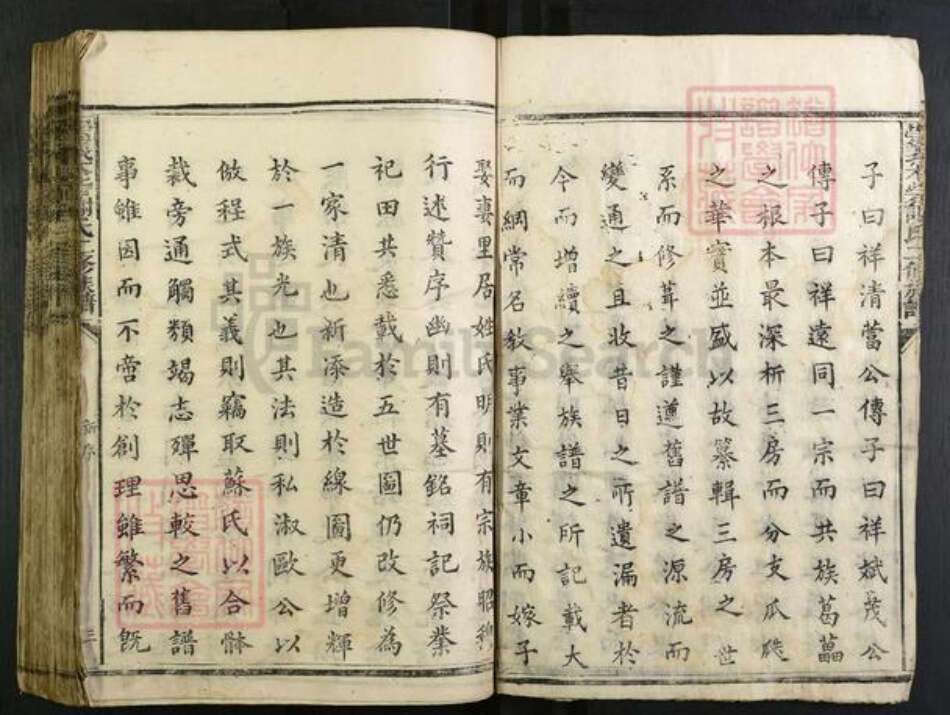 子曰祥清蒿公傳子曰祥斌茂公
傳子曰祥遠同一宗而共族葛藟
之根本最深析三房而分支瓜瓞
之華實並盛以故纂輯三房之世
系而修葺之謹遵舊譜之源流而
變通之且收昔日之所遺漏者於
今而增續之舉族譜之所記載大
而綱常名教事業文章小而嫁子
娶妻里居姓氏明則有宗族昭穆
行述贊序幽則有墓銘祠記祭業
祀田共悉載於五世圖仍改修為
一家清也新添造於線圖更增輝
於一族光也其法則私淑歐公以
倣程式其義則竊取蘇氏以合體
裁旁通觸類竭志殫思較之舊譜
事雖因而不啻於創理雖繁而旣
氏二修族譜
新序
三
FamilySearch